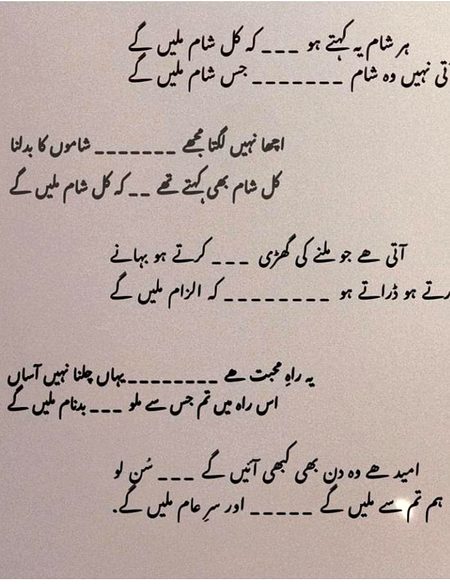 ہر شام یہ کہتے ہو ___ کہ کل شام ملیں گے
آتی نہیں وہ شام _______ جس شام ملیں گے
اچھا نہیں لگتا مجھے _______ شاموں کا بدلنا
کل شام بھی کہتے تھے __ کہ کل شام ملیں گے
آتی ھے جو ملنے کی گھڑی ___ کرتے ہو بہانے
ڈراتے ہو ________ کہ الزام ملیں گے
یہ راہِ محبت ھے ________ یہاں چلنا نہیں آساں
اس راہ میں تم جس سے ملو ___ بدنام ملیں گے
امید ھے وہ دن بھی کبھی آئیں گے ___ سُن لو
ہم تم سے ملیں گے _____ اور سرِ عام ملیں گے.